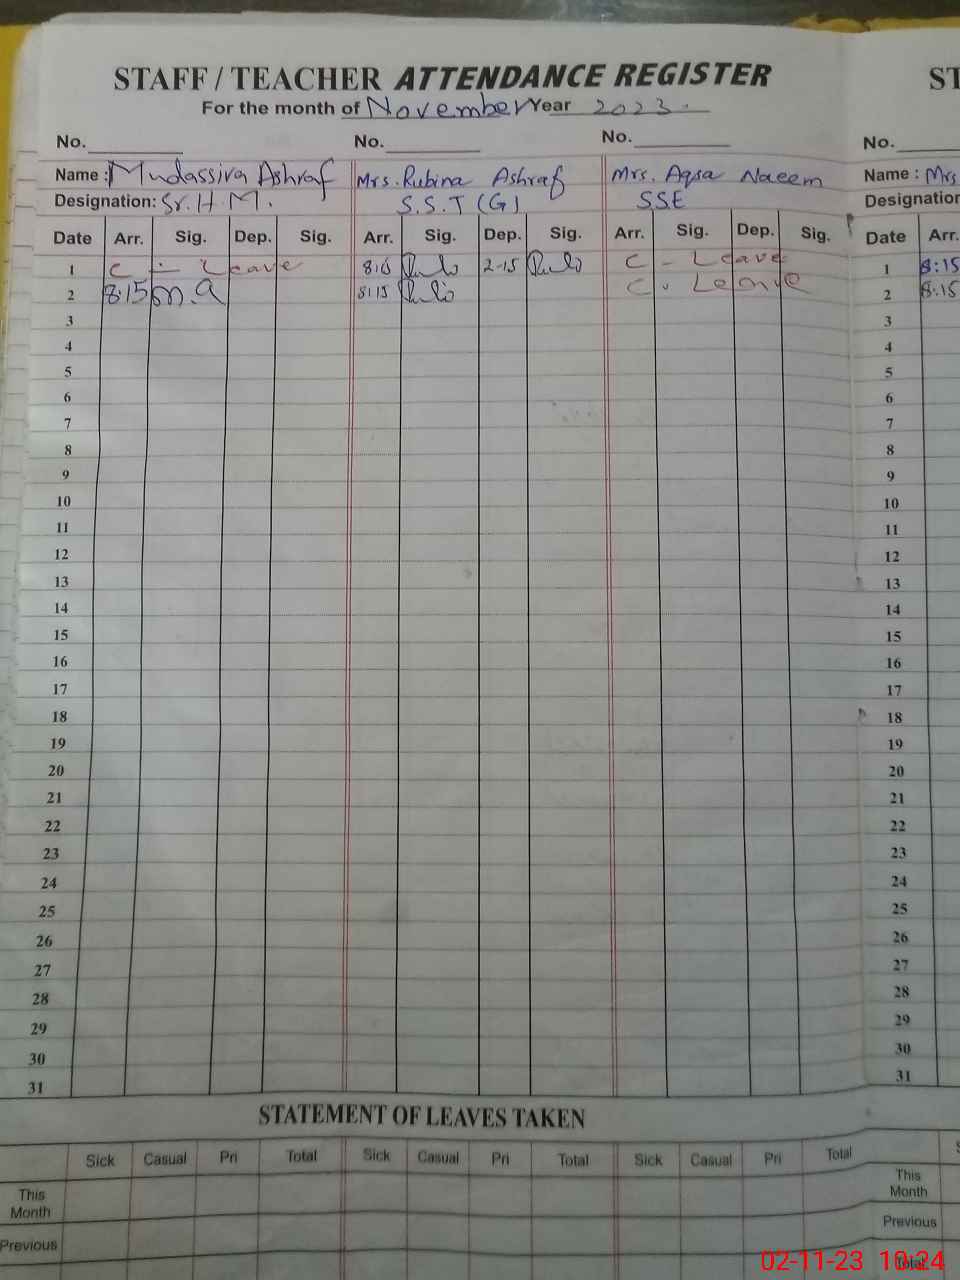 STAFF / TEACHER ATTENDANCE REGISTER ST
For the month of November Year 2023.
No. No. No. No.
Name : Mudassira Ashraf Mrs. Rubina Ashraf Mrs. Aqsa Naeem Name : Mrs
Designation: Sr. H. M. S.S.T (G) SSE Designation
Date Arr. Sig. Dep. Sig. Arr. Sig. Dep. Sig. Arr. Sig. Dep. Sig. Date Arr.
1 C - Leave 8:15 2-15 C - Leave 1 8:15
2 8:15 m.a 8:15 C. Leave 2 8:15
3 3
4 4
5 5
6 6
7 7
8 8
9 9
10 10
11 11
12 12
13 13
14 14
15 15
16 16
17 17
18 18
19 19
20 20
21 21
22 22
23 23
24 24
25 25
26 26
27 27
28 28
29 29
30 30
31 31
STATEMENT OF LEAVES TAKEN
Sick Casual Pri Total Sick Casual Pri Total Sick Casual Pri Total
This Month This Month
Previous Previous
Total
02-11-23 10:24